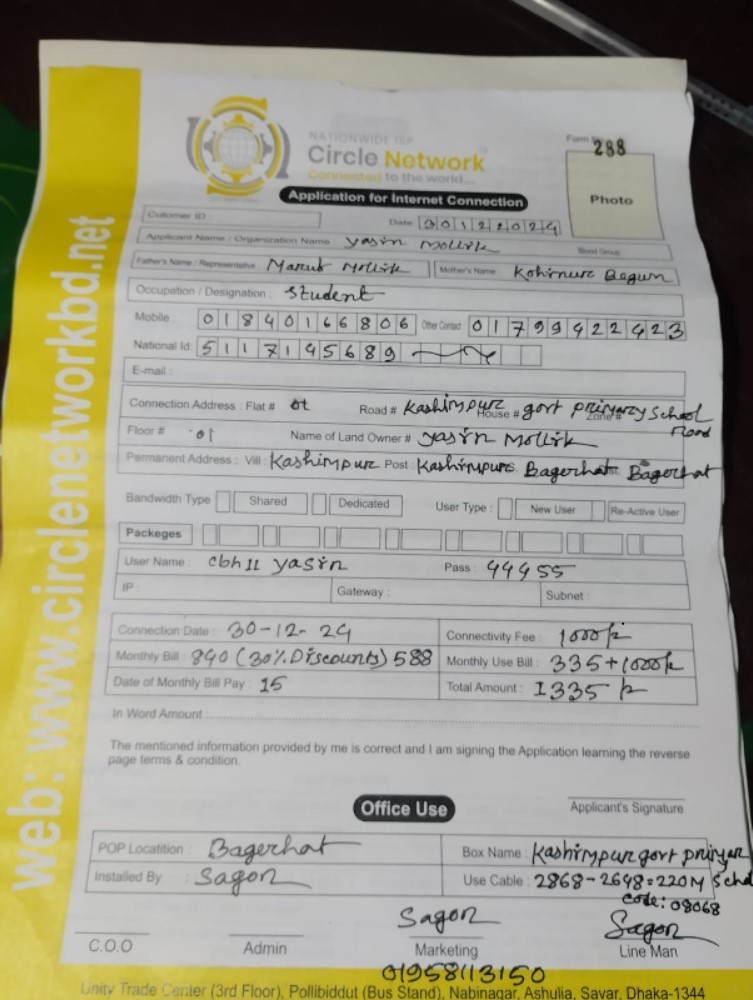 NATIONWIDE ISP
Circle Network
Connected to the world...
Form No 288
Photo
Application for Internet Connection
Customer ID
Date 30122024
Applicant Name / Organization Name yasin mollik
Blood Group
Father's Name / Representative Maruf Mollik Mother's Name Kohinur Begum
Occupation / Designation : Student
Mobile : 01840166806 Other Contact 01799422423
National Id: 5117145689
E-mail :
Connection Address : Flat # 01 Road # Kashimpur House # govt primary School Zone # Road
Floor # 01 Name of Land Owner # yasin Mollik
Permanent Address : Vill : Kashimpur Post : Kashimpur Bagerhat Bagerhat
Bandwidth Type Shared Dedicated User Type : New User Re-Active User
Packeges
User Name : cbh11 yasin Pass : 44455
IP : Gateway : Subnet :
Connection Date : 30-12-24 Connectivity Fee : 1000/-
Monthly Bill : 840 (30% Discounts) 588 Monthly Use Bill : 335+1000/-
Date of Monthly Bill Pay : 15 Total Amount : 1335/-
In Word Amount
The mentioned information provided by me is correct and I am signing the Application learning the reverse
page terms & condition.
Applicant's Signature
Office Use
POP Locatition : Bagerhat Box Name : Kashimpur govt
Installed By : Sagor Use Cable : 2868-2648=220M
Code: 08068
Sagor Sagor
C.O.O Admin Marketing Line Man
01958113150
Unity Trade Center (3rd Floor), Pollibiddut (Bus Stand), Nabinagar, Ashulia, Savar, Dhaka-1344
web: www.circlenetworkbd.net